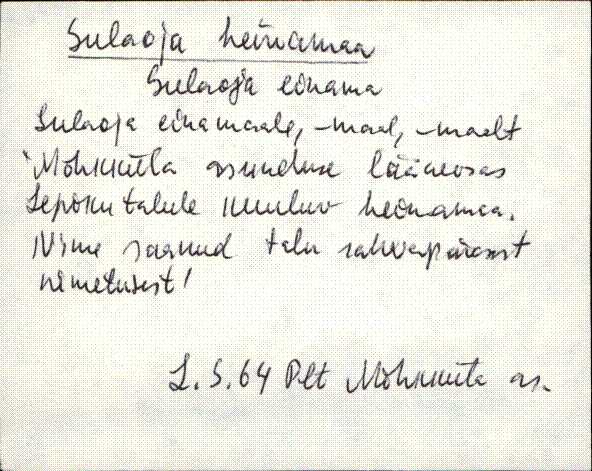 Sulaoja heinamaa
Sulaoja einama
Sulaoja einamaale, -maal, -maalt
Mohkküla asunduse lääneosas
Lepiku talule kuuluv heinamaa.
Nime saanud talu rahvapärasest
nimetusest!
L. S. 64 Plt Mohkküla as.